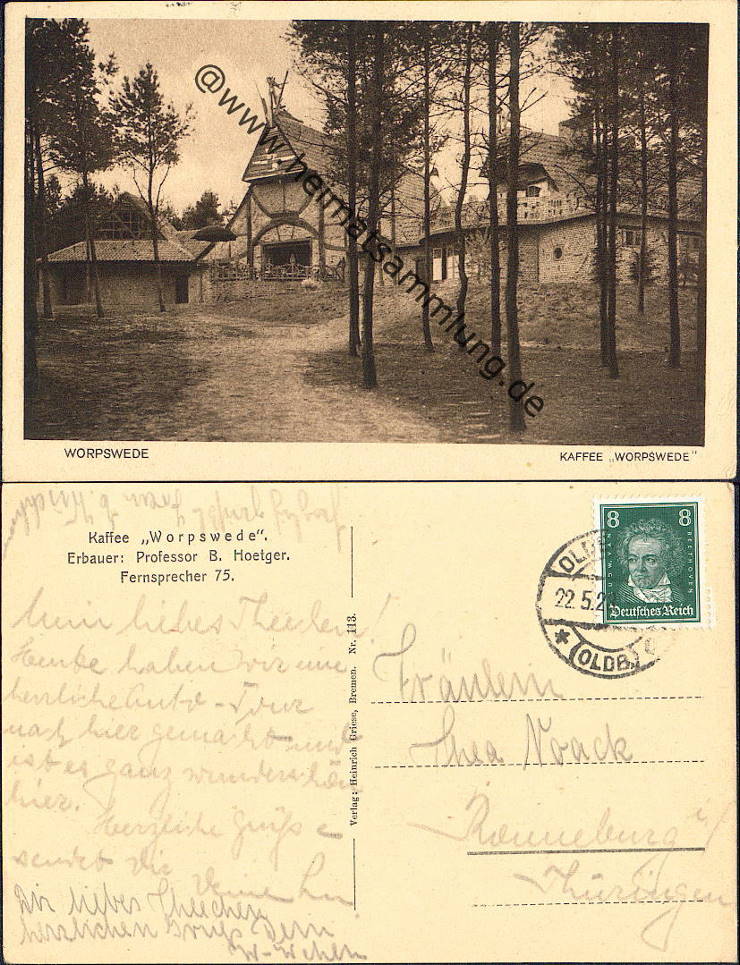 @www.heimatsammlung.de
WORPSWEDE
KAFFEE „WORPSWEDE"
Kaffee „Worpswede".
Erbauer: Professor B. Hoetger.
Fernsprecher 75.
Mein liebes Theechen!
Heute haben wir eine
herrliche Auto-Tour
nach hier gemacht und
ist es ganz wunderschön
hier.
Herzliche Grüße
sendet Dir
Deine
Dir liebes Theechen
herzlichen Gruß Dein
Verlag: Heinrich Griese, Bremen. Nr. 113.
8 8
LUDW. VAN BEETHOVEN
Deutsches Reich
22.5.2
(OLDB)
Fräulein
Thea Noack
Ronneburg i/
Thüringen